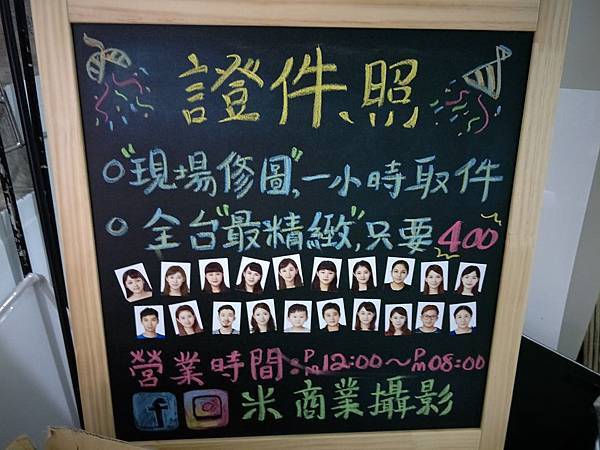 證件照
"現場修圖",一小時取件
全台"最精緻",只要400
營業時間:PM12:00~PM08:00
f 米商業攝影